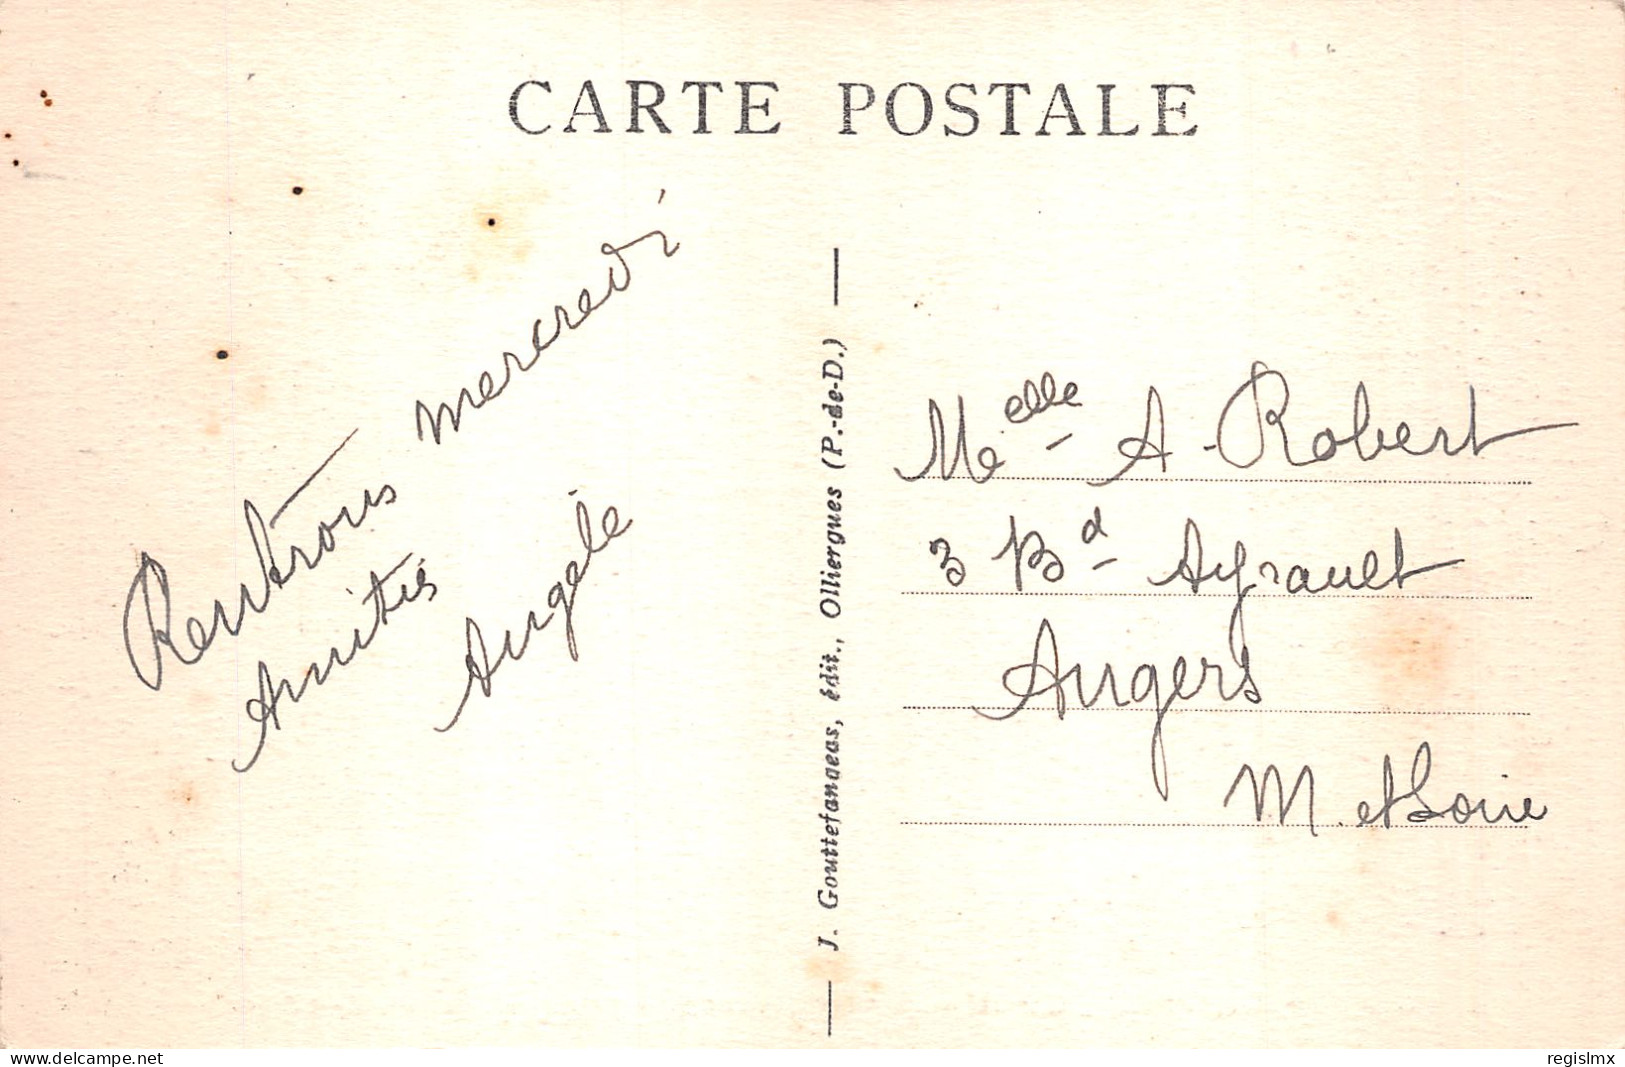 CARTE POSTALE
Rentrons mercredi
Amitiés
Angèle
J. Gouttefangeas, édit., Olliergues (P.-de-D.)
Melle A. Robert
3 Bd Ayrault
Angers
M. et Loire
www.delcampe.net
regislmx